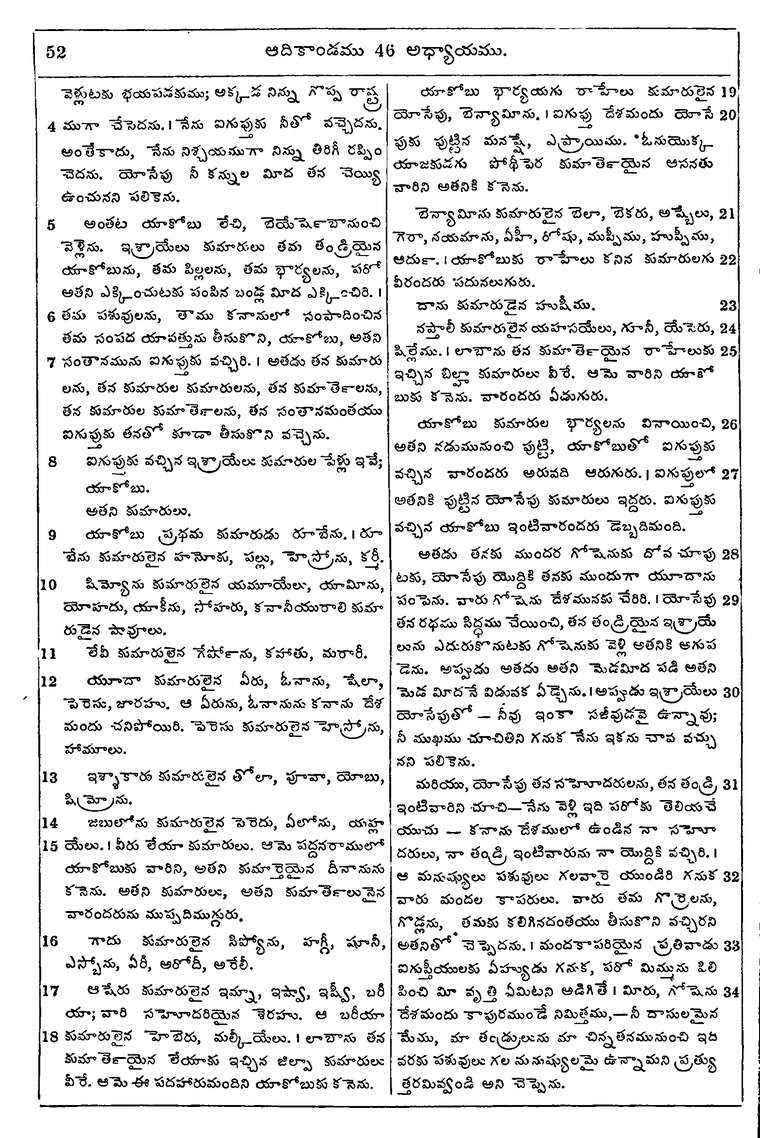 52
ఆదికాండము 46 అధ్యాయము.
వెళ్లుటకు భయపడకుము; అక్కడ నిన్ను గొప్ప రాష్ట్ర
4 ముగా చేసెదను. । నేను ఐగుప్తుకు నీతో వచ్చెదను.
అంతేకాదు, నేను నిశ్చయముగా నిన్ను తిరిగీ రప్పిం
చెదను. యోసేపు నీ కన్నుల మీద తన చెయ్యి
ఉంచునని పలికెను.
5 అంతట యాకోబు లేచి, బెయేర్షెబానుంచి
వెళ్లెను. ఇశ్రాయేలు కుమారులు తమ తండ్రియైన
యాకోబును, తమ పిల్లలను, తమ భార్యలను, పరో
అతని ఎక్కించుటకు పంపిన బండ్ల మీద ఎక్కించిరి. ।
6 తమ పశువులను, తాము కనానులో సంపాదించిన
తమ సంపద యావత్తును తీసుకొని, యాకోబు, అతని
7 సంతానమును ఐగుప్తుకు వచ్చిరి. । అతడు తన కుమారు
లను, తన కుమారుల కుమారులను, తన కుమార్తెలను,
తన కుమారుల కుమార్తెలను, తన సంతానమంతయు
ఐగుప్తుకు తనతో కూడా తీసుకొని వచ్చెను.
8 ఐగుప్తుకు వచ్చిన ఇశ్రాయేలు కుమారుల పేళ్లు ఇవే;
యాకోబు.
అతని కుమారులు.
9 యాకోబు ప్రథమ కుమారుడు రూబేను. । రూ
బేను కుమారులైన హనోకు, పల్లు, హెస్రోను, కర్మీ.
10 షిమ్యోను కుమారులైన యమూయేలు, యామీను,
యోహదు, యాకీను, సోహరు, కనానీయురాలి కుమా
రుడైన షావూలు.
11 లేవీ కుమారులైన గేర్షోను, కహాతు, మరారీ.
12 యూదా కుమారులైన ఏరు, ఓనాను, షేలా,
పెరెసు, జారహు. ఆ ఏరును, ఓనానును కనాను దేశ
మందు చనిపోయిరి. పెరెసు కుమారులైన హెస్రోను,
హామూలు.
13 ఇశ్శాకారు కుమారులైన తోలా, పూవా, యోబు,
షిమ్రోను.
14 జబులోను కుమారులైన సెరెదు, ఏలోను, యహ్ల
15 యేలు. । వీరు లేయా కుమారులు. ఆమె పద్దనరాములో
యాకోబుకు వారిని, అతని కుమార్తెయైన దీనానును
కనెను. అతని కుమారులు, అతని కుమార్తెలునైన
వారందరును ముప్పదిముగ్గురు.
16 గాదు కుమారులైన సిప్యోను, హగ్గీ, షూనీ,
ఎస్బోను, ఏరీ, ఆరోదీ, అరేలీ.
17 ఆషేరు కుమారులైన ఇమ్నా, ఇష్వా, ఇష్వీ, బరీ
యా; వారి సహోదరియైన శెరహు. ఆ బరీయా
18 కుమారులైన హెబెరు, మల్కీయేలు. । లాబాను తన
కుమార్తెయైన లేయాకు ఇచ్చిన జిల్పా కుమారులు
వీరే. ఆమె ఈ పదహారుమందిని యాకోబుకు కనెను.
యాకోబు భార్యయగు రాహేలు కుమారులైన 19
యోసేపు, బెన్యామీను. । ఐగుప్తు దేశమందు యోసే 20
పుకు పుట్టిన మనష్షే, ఎఫ్రాయిము. *ఓనుయొక్క
యాజకుడగు పోథీఫెర కుమార్తెయైన ఆసనతు
వారిని అతనికి కనెను.
బెన్యామీను కుమారులైన బెలా, బెకరు, అష్బేలు, 21
గెరా, నయమాను, ఏహీ, రోషు, ముప్పీము, హుప్పీము,
ఆర్దు. । యాకోబుకు రాహేలు కనిన కుమారులగు 22
వీరందరు పదునలుగురు.
దాను కుమారుడైన హుషీము. 23
నఫ్తాలీ కుమారులైన యహసయేలు, గూనీ, యేసెరు, 24
షిల్లేము. । లాబాను తన కుమార్తెయైన రాహేలుకు 25
ఇచ్చిన బిల్హా కుమారులు వీరే. ఆమె వారిని యాకో
బుకు కనెను. వారందరు ఏడుగురు.
యాకోబు కుమారుల భార్యలను వినాయించి, 26
అతని నడుమునుంచి పుట్టి, యాకోబుతో ఐగుప్తుకు
వచ్చిన వారందరు అరువది ఆరుగురు. । ఐగుప్తులో 27
అతనికి పుట్టిన యోసేపు కుమారులు ఇద్దరు. ఐగుప్తుకు
వచ్చిన యాకోబు ఇంటివారందరు డెబ్బదిమంది.
అతడు తనకు ముందర గోషెనుకు దోవ చూపు 28
టకు, యోసేపు యొద్దికి తనకు ముందుగా యూదాను
పంపెను. వారు గోషెను దేశమునకు చేరిరి. । యోసేపు 29
తన రథము సిద్ధము చేయించి, తన తండ్రియైన ఇశ్రాయే
లును ఎదురుకొనుటకు గోషెనుకు వెళ్లి అతనికి అగుప
డెను. అప్పుడు అతడు అతని మెడమీద పడి అతని
మెడ మీదనే విడువక ఏడ్చెను. । అప్పుడు ఇశ్రాయేలు 30
యోసేపుతో — నీవు ఇంకా సజీవుడవై ఉన్నావు;
నీ ముఖము చూచితిని గనుక నేను ఇకను చావ వచ్చు
నని పలికెను.
మరియు, యోసేపు తన సహోదరులను, తన తండ్రి 31
ఇంటివారిని చూచి—నేను వెళ్లి ఇది పరోకు తెలియచే
యుచు — కనాను దేశములో ఉండిన నా సహో
దరులు, నా తండ్రి ఇంటివారును నా యొద్దికి వచ్చిరి. ।
ఆ మనుష్యులు పశువులు గలవారై యుండిరి గనుక 32
వారు మందల కాపరులు. వారు తమ గొర్రెలను,
గొడ్లను, తమకు కలిగినదంతయు తీసుకొని వచ్చిరని
అతనితో చెప్పెదను. । మందకాపరియైన ప్రతివాడు 33
ఐగుప్తీయులకు ఏహ్యుడు గనుక, పరో మిమ్మును పిలి
పించి మీ వృత్తి ఏమిటని అడిగితే । మీరు, గోషెను 34
దేశమందు కాపురముండే నిమిత్తము,—నీ దాసులమైన
మేము, మా తండ్రులును మా చిన్నతనమునుంచి ఇది
వరకు పశువులు గల మనుష్యులమై ఉన్నామని ప్రత్యు
త్తరమివ్వండి అని చెప్పెను.